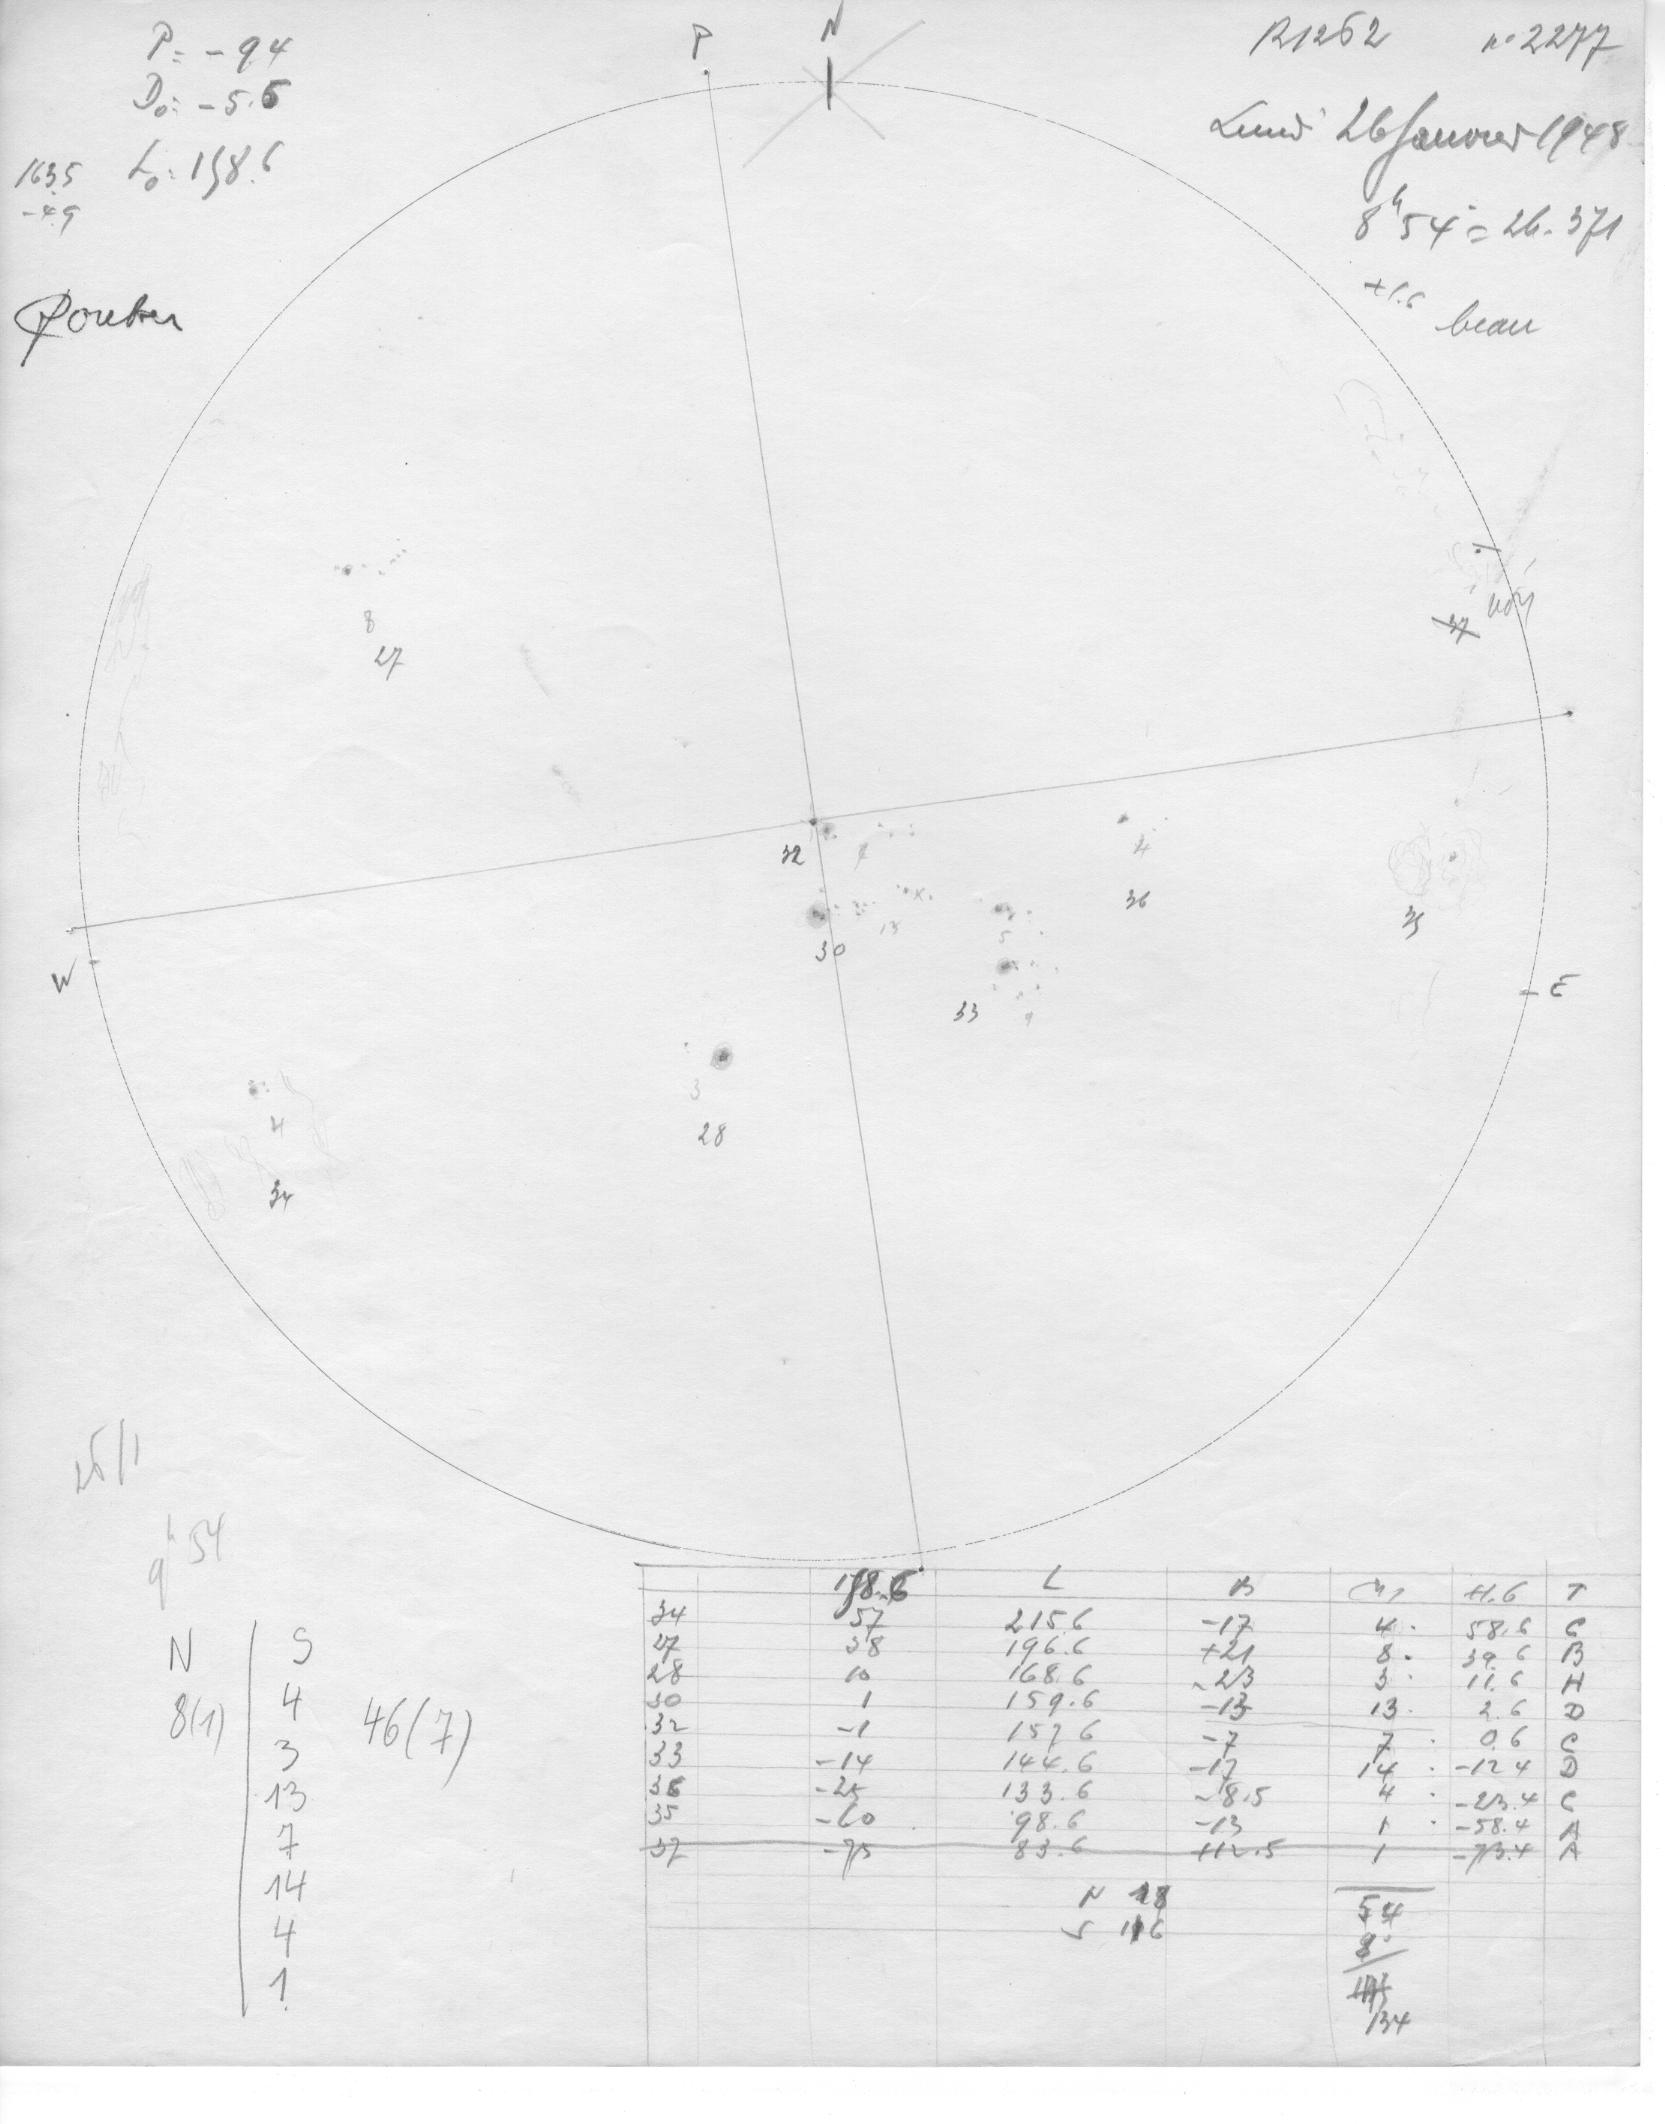 P = -9.4
D₀ = -5.5
L₀ = 158.6
163.5
-4.9
P
N
R1262 n° 2277
Lundi 26 Janvier 1948
8h54 = 26.371
+1.6
beau
8
27
37
non
32
7
4
36
35
13
30
5
33
9
W
E
3
28
4
34
26/1
9h54
158.6 L B +1.6 T
34 57 215.6 -17 4 58.6 C
27 38 196.6 +21 8 39.6 B
28 10 168.6 -23 3 11.6 H
30 1 159.6 -13 13 2.6 D
32 -1 157.6 -7 7 0.6 C
33 -14 144.6 -17 14 -12.4 D
36 -25 133.6 -8.5 4 -23.4 C
35 -60 98.6 -13 1 -58.4 A
37 -75 83.6 +12.5 1 -73.4 A
N 18
S 116
54
8
134
N S
8(1) 4 46(7)
3
13
7
14
4
1